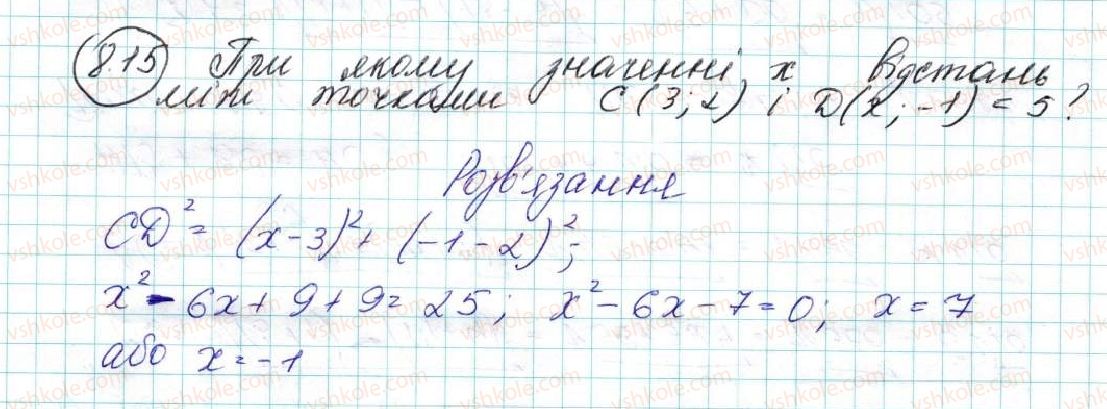 8.15 При якому значенні x відстань
між точками C(3; 2) і D(x; -1) = 5?
Розв'язання
CD² = (x-3)² + (-1-2)²;
x² - 6x + 9 + 9 = 25; x² - 6x - 7 = 0; x = 7
або x = -1